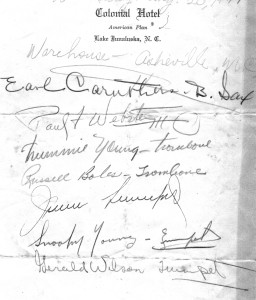 Colonial Hotel
American Plan
Lake Junaluska, N. C.
Warehouse - Asheville, N.C.
Earl Caruthers - B. Sax
Paul F Webster
Trummie Young - trombone
Russell Boles - Trombone
Snooky Young -
Gerald Wilson Trumpet